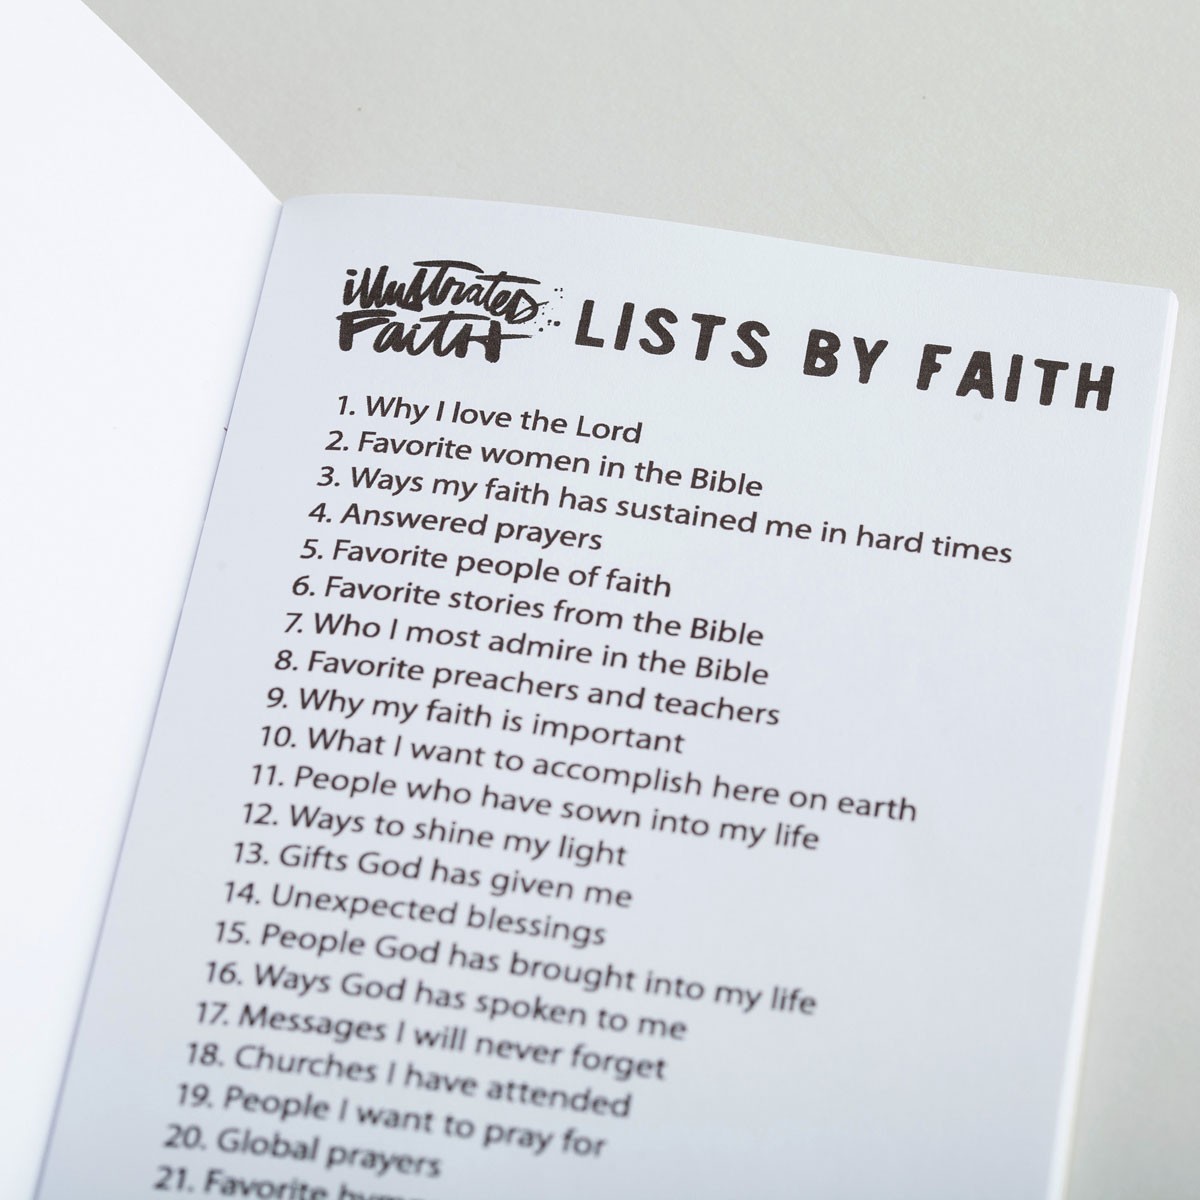 illustrated Faith LISTS BY FAITH
1. Why I love the Lord
2. Favorite women in the Bible
3. Ways my faith has sustained me in hard times
4. Answered prayers
5. Favorite people of faith
6. Favorite stories from the Bible
7. Who I most admire in the Bible
8. Favorite preachers and teachers
9. Why my faith is important
10. What I want to accomplish here on earth
11. People who have sown into my life
12. Ways to shine my light
13. Gifts God has given me
14. Unexpected blessings
15. People God has brought into my life
16. Ways God has spoken to me
17. Messages I will never forget
18. Churches I have attended
19. People I want to pray for
20. Global prayers
21. Favorite